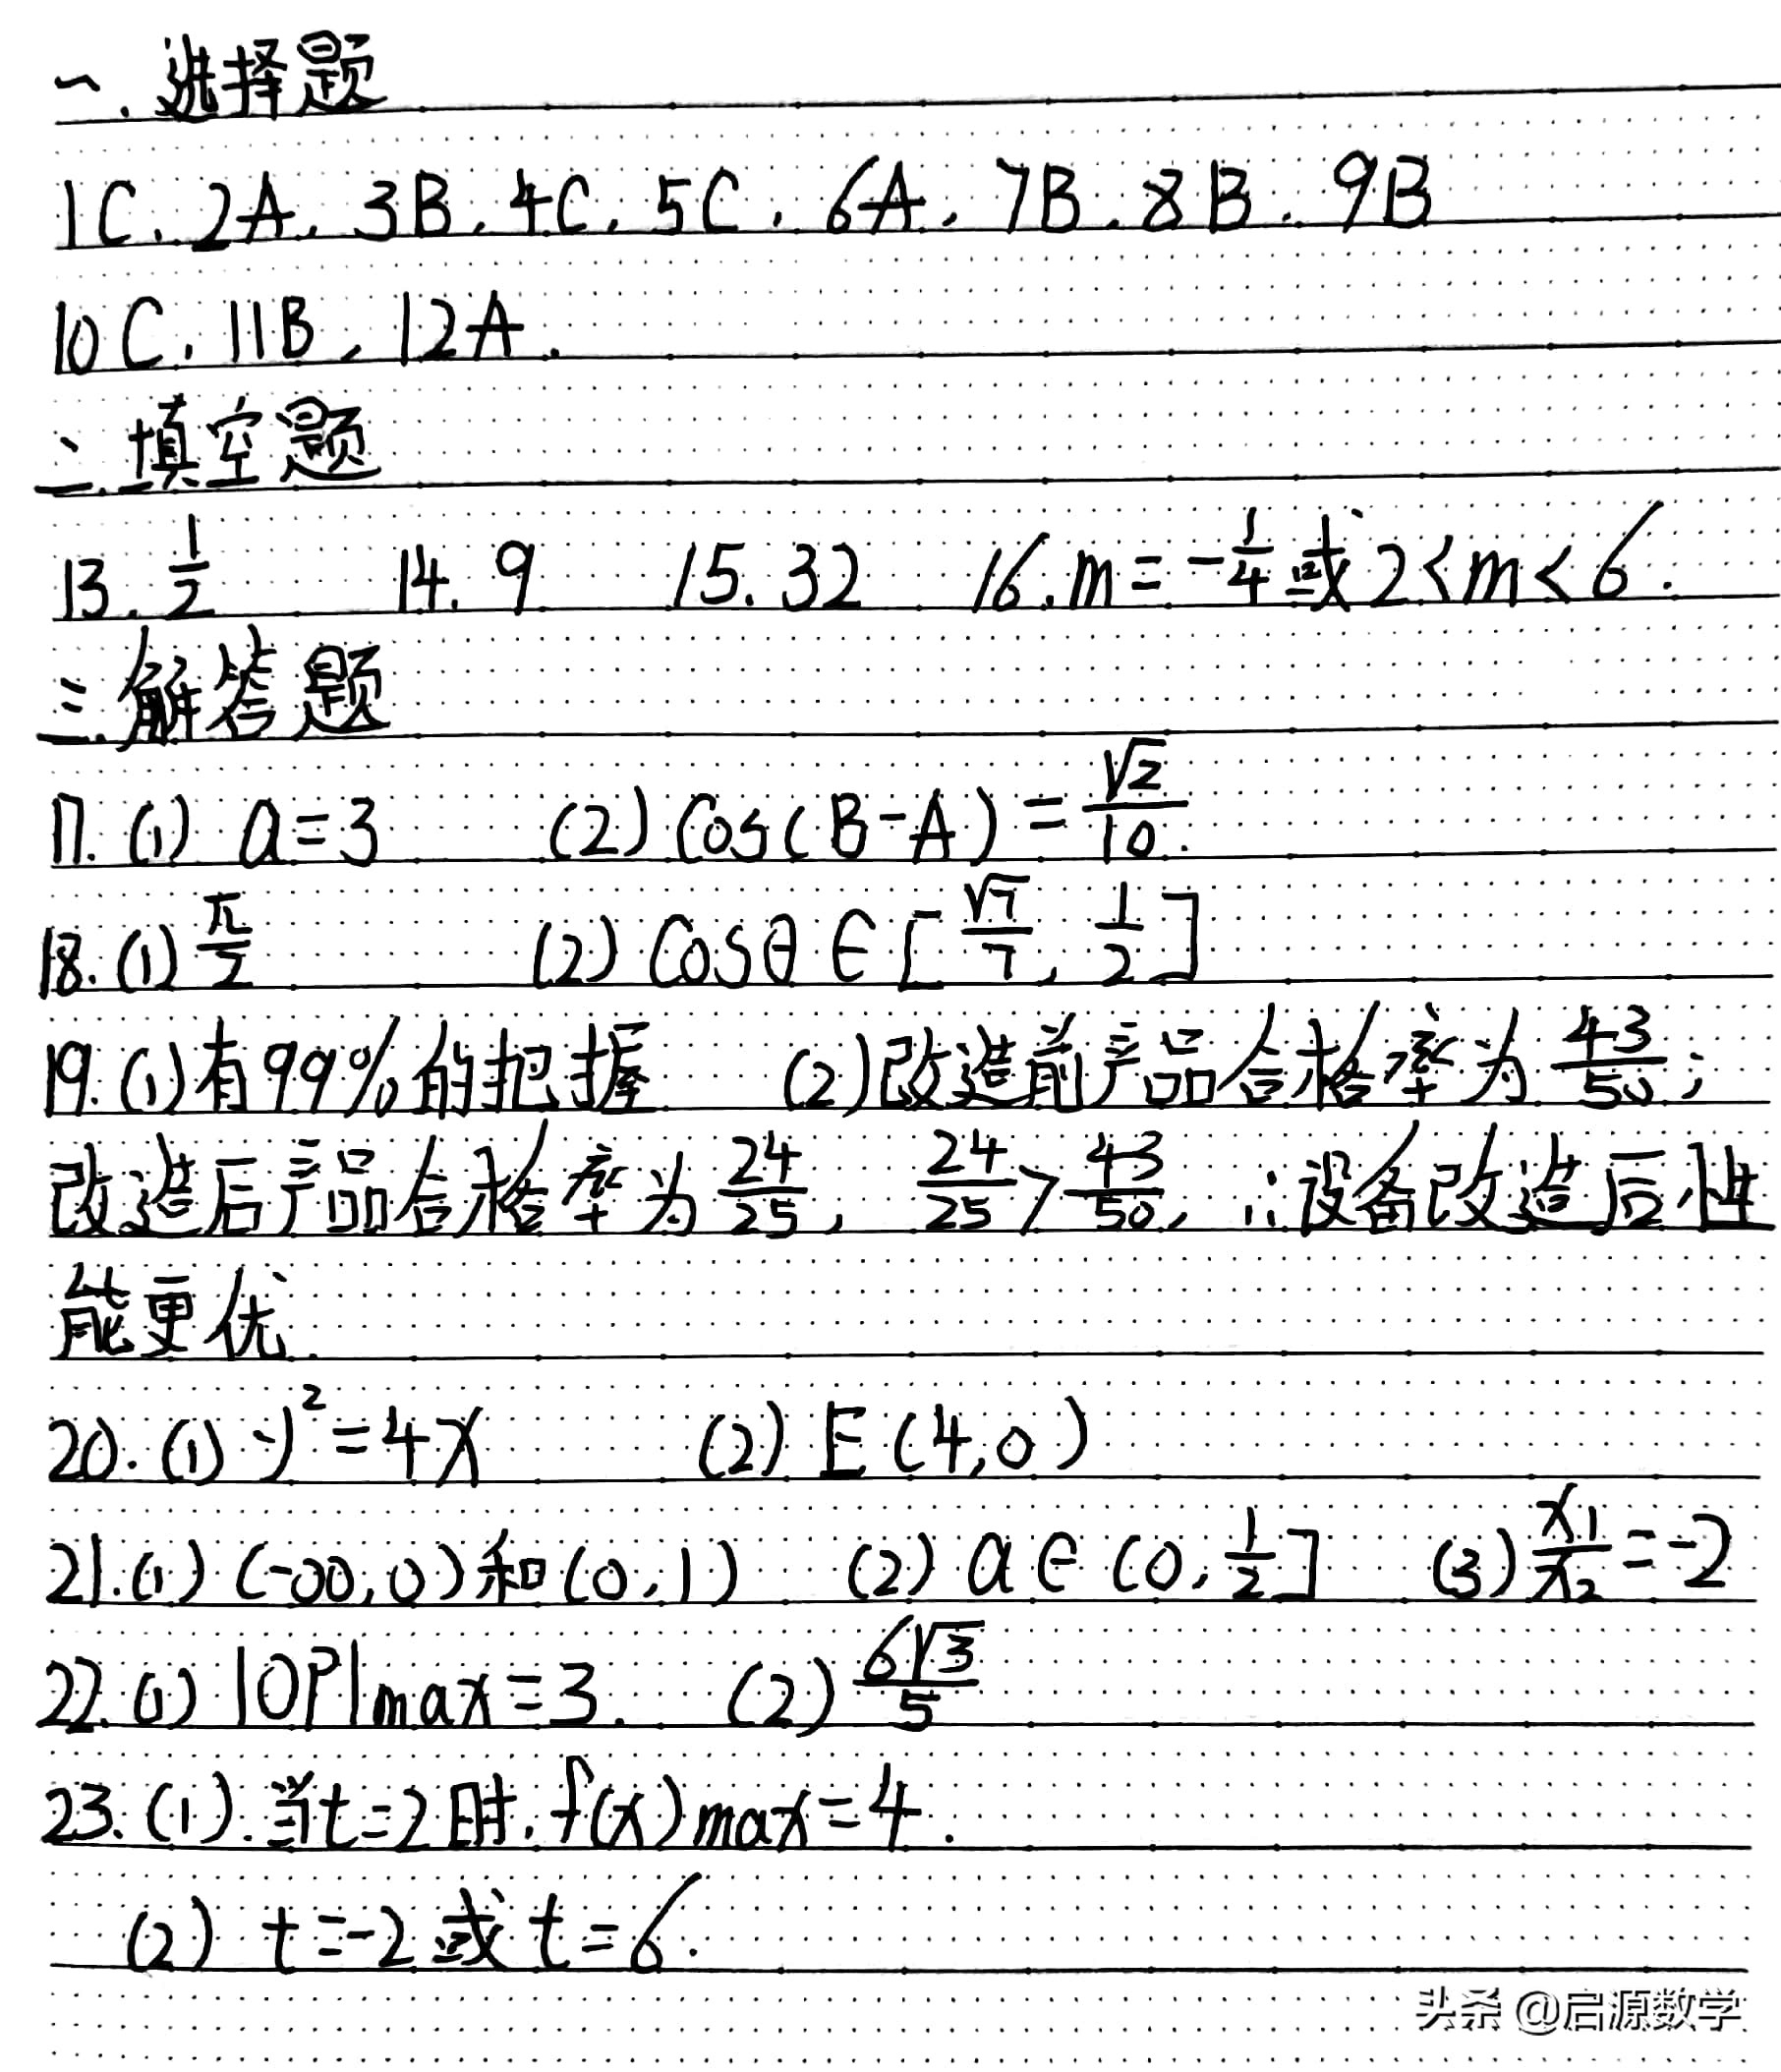 一.选择题
1C.2A.3B.4C.5C.6A.7B.8B.9B
10C.11B,12A.
二.填空题
13. 1/2 14. 9 15. 32 16. m=-1/4或2<m<6.
三.解答题
17. (1) a=3 (2) cos(B-A)=√2/10.
18. (1) π/2 (2) cosθ∈[√7/7, 1/2]
19. (1)有99%的把握 (2)改造前产品合格率为43/50;
改造后产品合格率为24/25, 24/25>43/50, ∴设备改造后性
能更优.
20. (1) y²=4x (2) E(4,0)
21. (1) (-∞,0)和(0,1) (2) a∈(0,1/2] (3) x₁/x₂=-2
22. (1) |OP|max=3. (2) 6√3/5
23. (1).当t=2时.f(x)max=4.
(2) t=-2或t=6.
头条 @启源数学